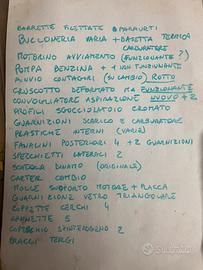 BARRETTE FILETTATE PARAURTI
BULLONERIA VARIA + BASETTA TERMICA
CARBURATORE
MOTORINO AVVIAMENTO (FUNZIONANTE ?)
POMPA BENZINA + 1 NON FUNZIONANTE
RINVIO CONTAGIRI (SU CAMBIO) ROTTO
CRUSCOTTO DEFORMATO MA FUNZIONANTE
CONVOGLIATORE ASPIRAZIONE NUOVO + 2
PROFILI SGOCCIOLATOIO CROMATO
GUARNIZIONI SCARICO E CARBURATORE
PLASTICHE INTERNI (VARIE)
FANALINI POSTERIORI 4 + 2 GUARNIZIONI
SPECCHIETTI LATERALI 2
SCATOLA DINAMO (ORIGINALE)
CARTER CAMBIO
MOLLE SUPPORTO MOTORE + PLACCA
GUARNIZIONE VETRO TRIANGOLARE
COPPETTE CERCHI 4
5
COPERCHIO SPINTEROGENO 2
BRACCI TERGI
Subito